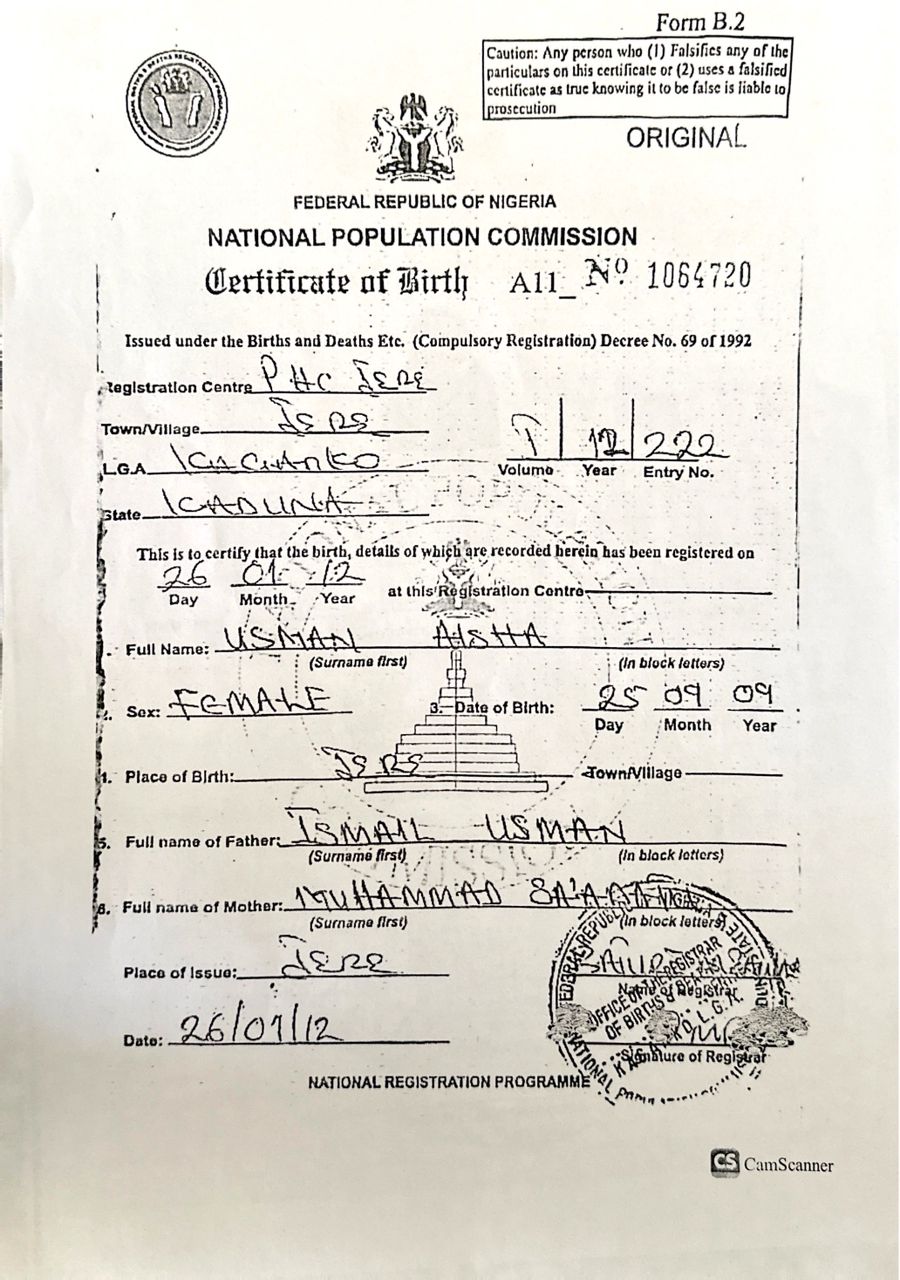 Form B.2
Caution: Any person who (1) Falsifies any of the
particulars on this certificate or (2) uses a falsified
certificate as true knowing it to be false is liable to
prosecution
ORIGINAL
FEDERAL REPUBLIC OF NIGERIA
NATIONAL POPULATION COMMISSION
Certificate of Birth A11_ Nº 1064720
Issued under the Births and Deaths Etc. (Compulsory Registration) Decree No. 69 of 1992
Registration Centre PHC JERE
Town/Village JERE
L.G.A KACHARKO
I 12 222
Volume Year Entry No.
State KADUNA
This is to certify that the birth, details of which are recorded herein has been registered on
26 01 12
Day Month Year at this Registration Centre
1. Full Name: USMAN AISHA
(Surname first) (In block letters)
2. Sex: FEMALE 3. Date of Birth: 25 09 09
Day Month Year
Place of Birth: JERE Town/Village
5. Full name of Father: ISMAIL USMAN
(Surname first) (In block letters)
6. Full name of Mother: MUHAMMAD SA'ADA
(Surname first) (In block letters)
Place of Issue: JERE
Name of Registrar
OFFICE OF THE REGISTRAR
OF BIRTHS
L.G.A.
Date: 26/01/12
Signature of Registrar
NATIONAL REGISTRATION PROGRAMME
CS CamScanner